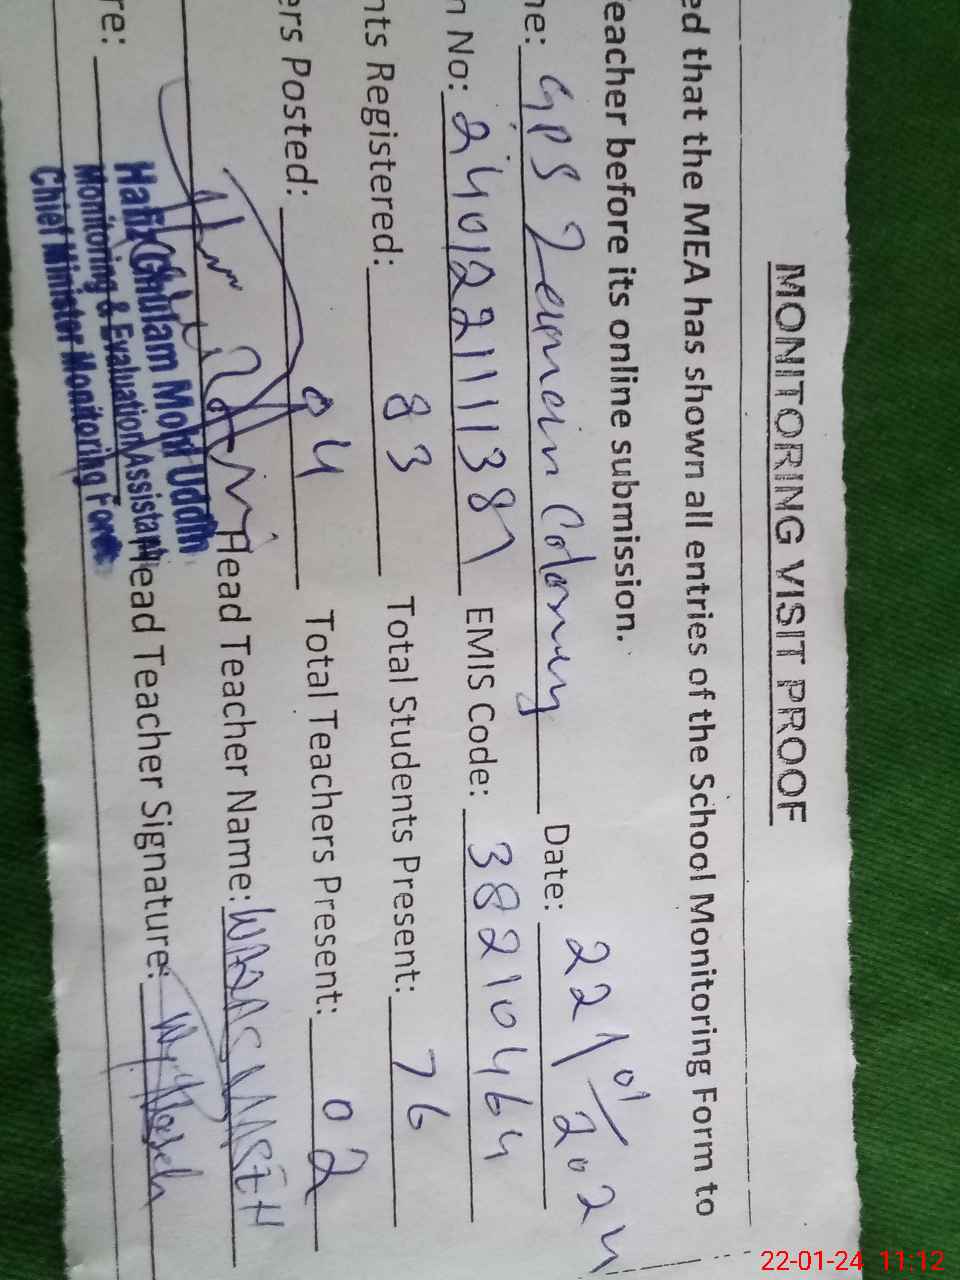 MONITORING VISIT PROOF
ed that the MEA has shown all entries of the School Monitoring Form to
eacher before its online submission.
ne: GPS Colony Date: 22/01/2024
n No: EMIS Code: 38210464
nts Registered: 83 Total Students Present: 76
ers Posted: 04 Total Teachers Present: 02
Head Teacher Name:
re: Head Teacher Signature:
Hafiz Ghulam Mohi Uddin
Monitoring & Evaluation Assistant
Chief Minister Monitoring Force
22-01-24 11:12